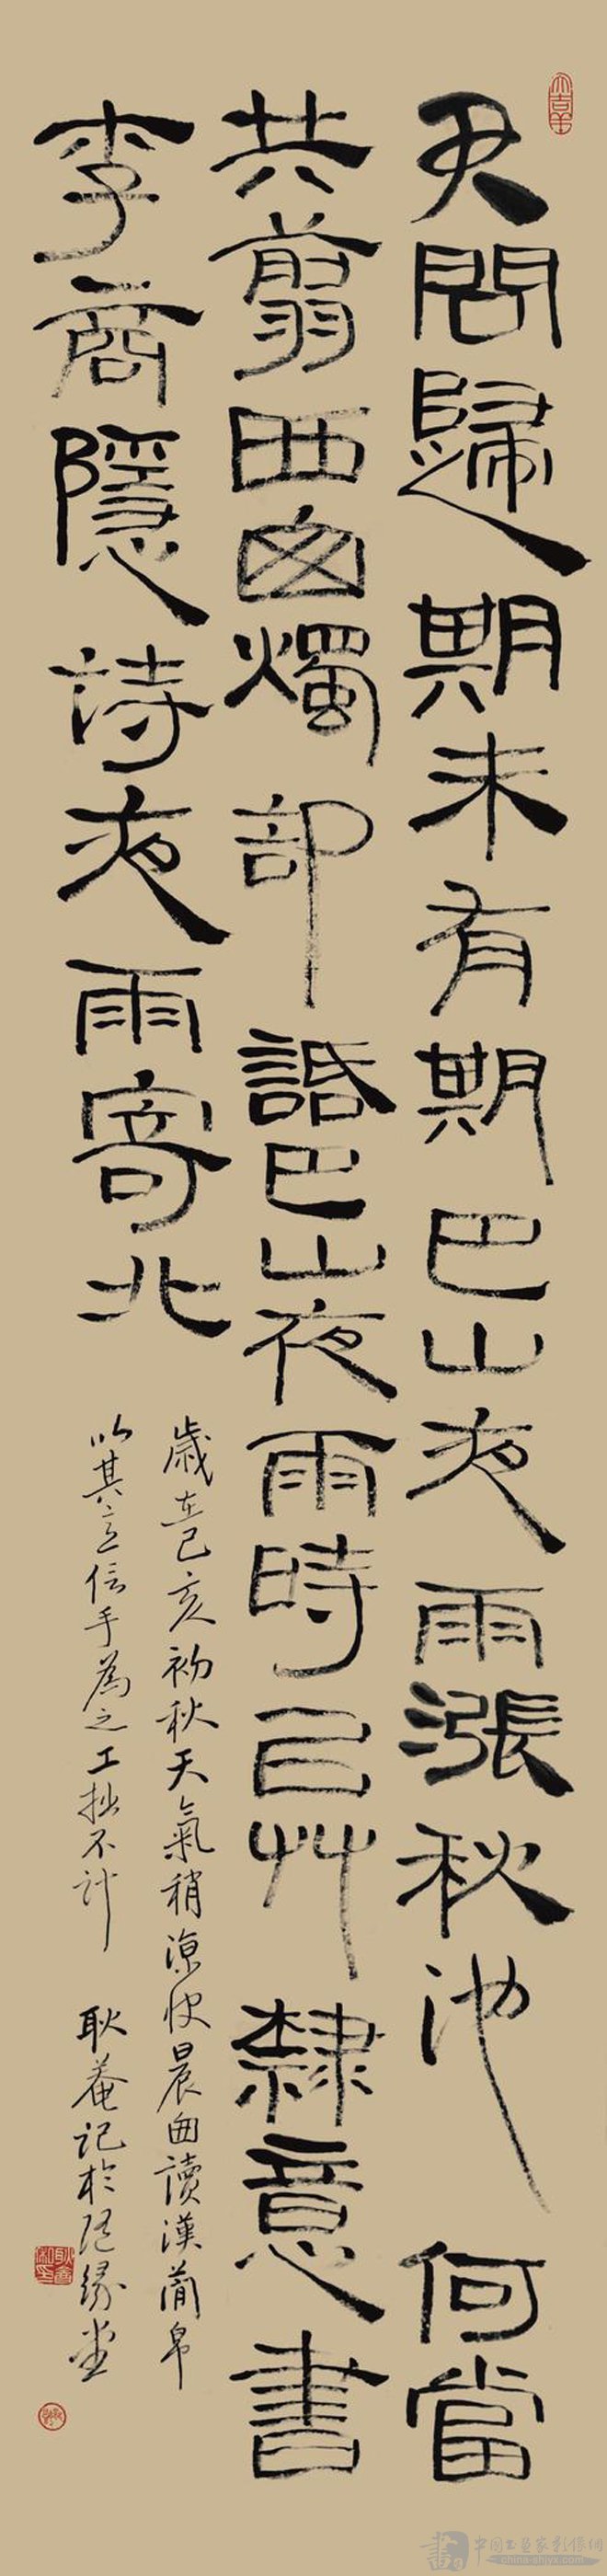 君問歸期未有期巴山夜雨漲秋池何當
共翦西囪燭卻話巴山夜雨時㠯艸隸意書
李商隱詩夜雨寄北
歲在己亥初秋天氣稍涼快晨囪讀漢簡帛
以其意信手為之工拙不計 耿菴記於隨緣堂
大吉羊